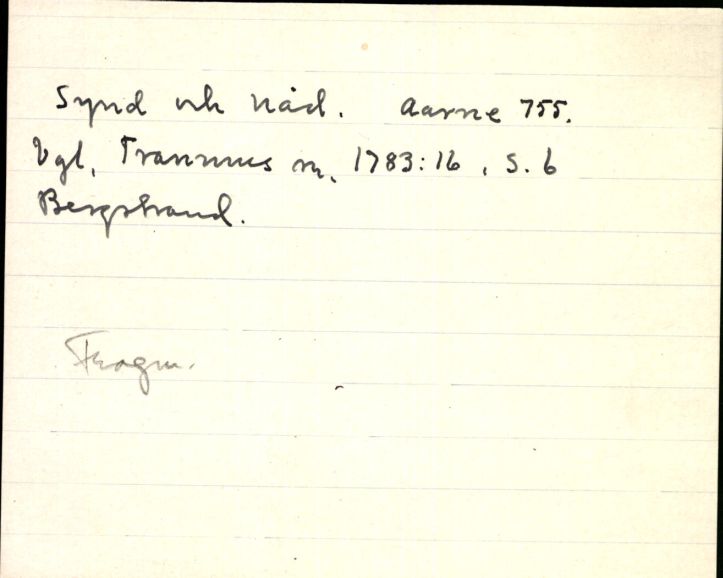 Synd och nåd. Aarne 755.
Vgl. Tranemus m. 1783:16, S. 6
Bergstrand.
Fragm.